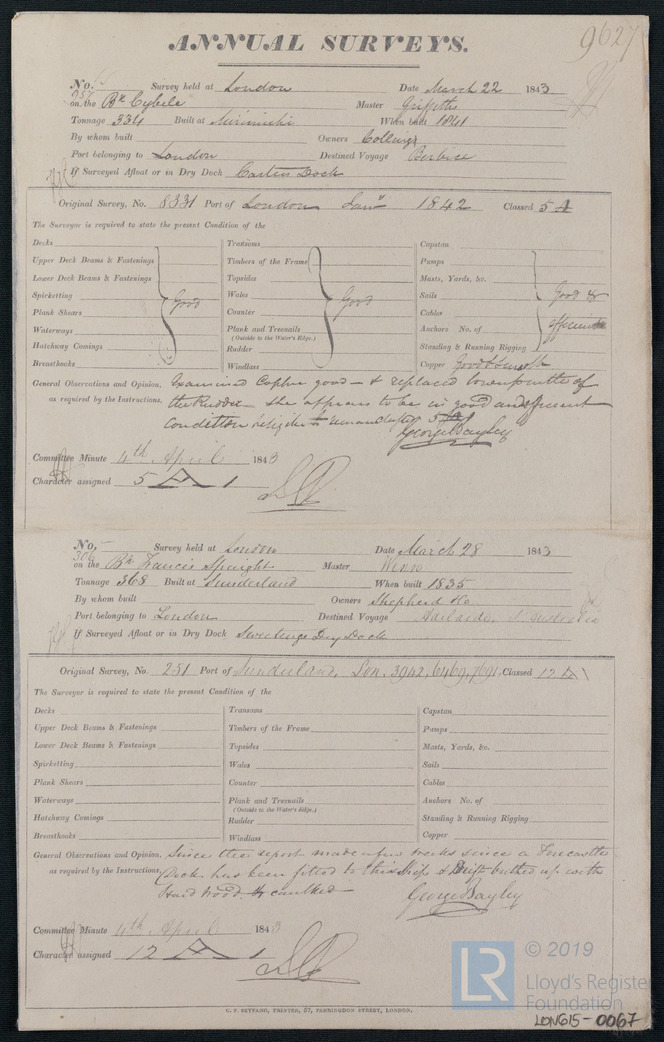 ANNUAL SURVEYS.
9627
No. Survey held at London Date March 22 1843
on the Bk Cybele Master Griffiths
Tonnage 334 Built at Mirimichi When built 1841
By whom built Owners Collings
Port belonging to London Destined Voyage Berbice
If Surveyed Afloat or in Dry Dock Carters Dock
Original Survey, No. 8331 Port of London Jany 1842 Classed 5 A
The Surveyor is required to state the present Condition of the
Decks Transoms Capstan
Upper Deck Beams & Fastenings Timbers of the Frame Pumps
Lower Deck Beams & Fastenings Topsides Masts, Yards, &c.
Spirketting Good Wales Good Sails Good &
Plank Shears Counter Cables
Waterways Plank and Treenails Anchors No. of efficient
(Outside to the Water's Edge.)
Hatchway Comings Rudder Standing & Running Rigging
Breasthooks Windlass Copper Good & Smooth
General Observations and Opinion, Examined Copper good - & replaced lower pintle of
as required by the Instructions. the Rudder She appears to be in good and efficient
condition & eligible to remain classed 5
George Bayley
Committee Minute 4th April 1843
Character assigned 5 A 1
No. Survey held at London Date March 28 1843
306
on the Bk Francis Spaight Master Winn
Tonnage 368 Built at Sunderland When built 1835
By whom built Owners Shepherd & Co
Port belonging to London Destined Voyage Adelaide, S. Australia
If Surveyed Afloat or in Dry Dock Sweetings Dry Dock
Original Survey, No. 251 Port of Sunderland, Lon. 3942, 6469, 7691, Classed 12 A 1
The Surveyor is required to state the present Condition of the
Decks Transoms Capstan
Upper Deck Beams & Fastenings Timbers of the Frame Pumps
Lower Deck Beams & Fastenings Topsides Masts, Yards, &c.
Spirketting Wales Sails
Plank Shears Counter Cables
Waterways Plank and Treenails Anchors No. of
(Outside to the Water's Edge.)
Hatchway Comings Rudder Standing & Running Rigging
Breasthooks Windlass Copper
General Observations and Opinion, Since the report made a few weeks since a Forecastle
as required by the Instructions. Deck has been fitted to this Ship & butted up with
Hard Wood & caulked George Bayley
Committee Minute 4th April 1843
Character assigned 12 A 1
C. F. SEYFANG, PRINTER, 57, FARRINGDON STREET, LONDON.
LR
© 2019
Lloyd's Register
Foundation
LON615-0067